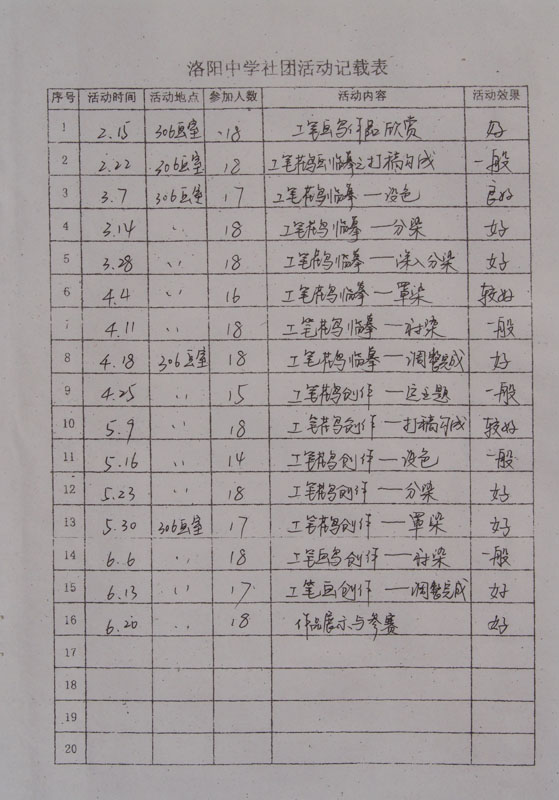 洛阳中学社团活动记载表
序号 活动时间 活动地点 参加人数 活动内容 活动效果
1 2.15 306画室 18 工笔画鸟作品欣赏 好
2 2.22 306画室 18 工笔花鸟画临摹之打稿勾成 一般
3 3.7 306画室 17 工笔花鸟临摹——设色 良好
4 3.14 〃 18 工笔花鸟临摹——分染 好
5 3.28 〃 18 工笔花鸟临摹——深入分染 好
6 4.4 〃 16 工笔花鸟临摹——罩染 较好
7 4.11 〃 18 工笔花鸟临摹——衬染 一般
8 4.18 306画室 18 工笔花鸟临摹——调整完成 好
9 4.25 〃 15 工笔花鸟创作——定主题 一般
10 5.9 〃 18 工笔花鸟创作——打稿勾成 较好
11 5.16 〃 14 工笔花鸟创作——设色 一般
12 5.23 〃 18 工笔花鸟创作——分染 好
13 5.30 306画室 17 工笔花鸟创作——罩染 好
14 6.6 〃 18 工笔画鸟创作——衬染 一般
15 6.13 〃 17 工笔画创作——调整完成 好
16 6.20 〃 18 作品展示与参赛 好
17
18
19
20